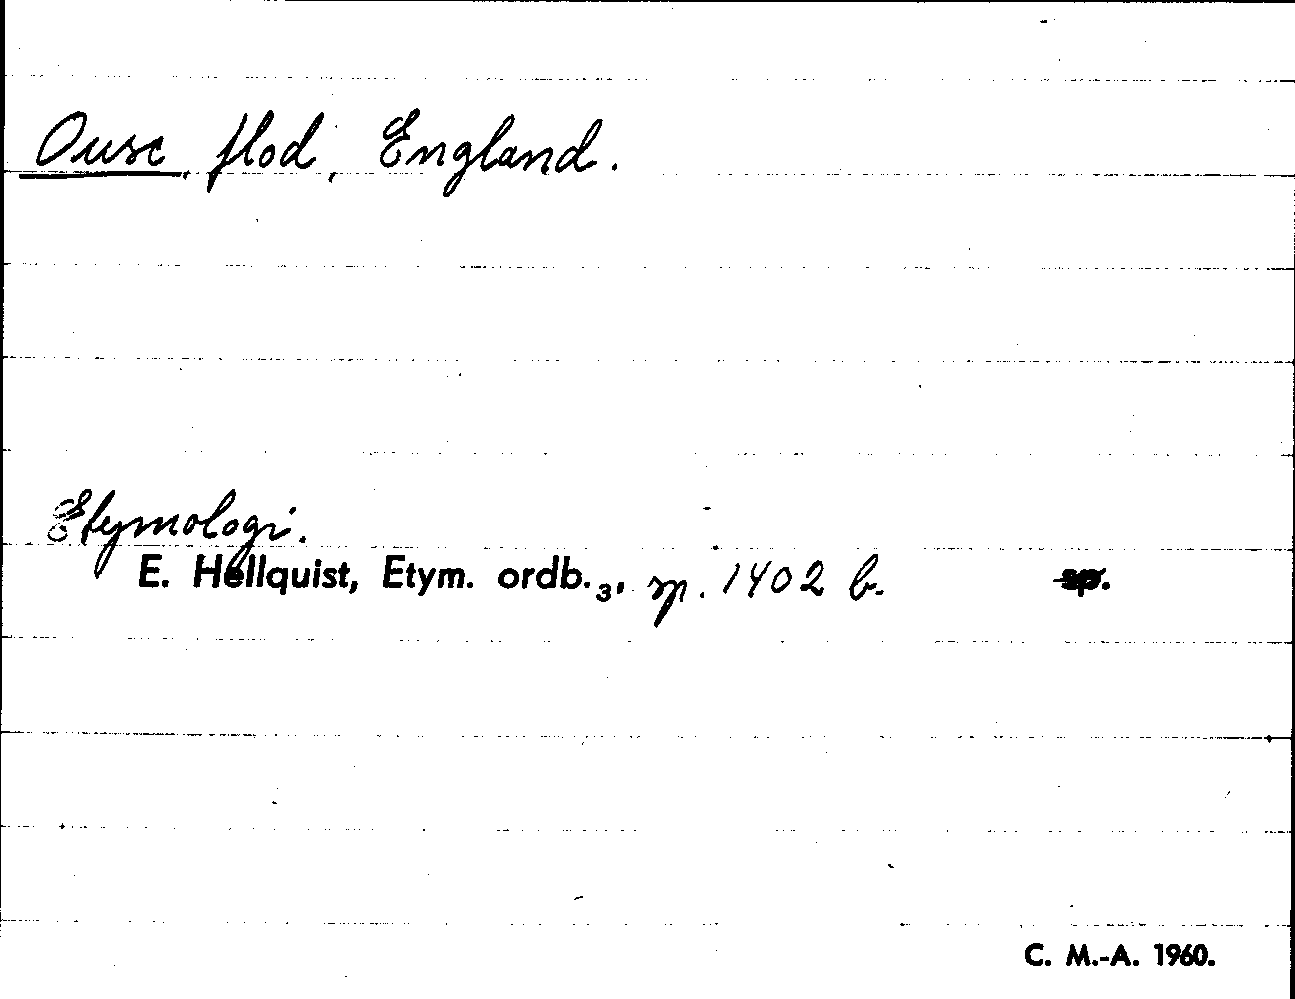 Ouse, flod, England.
Etymologi.
E. Hellquist, Etym. ordb.3, sp. 1402 b. sp.
C. M.-A. 1960.